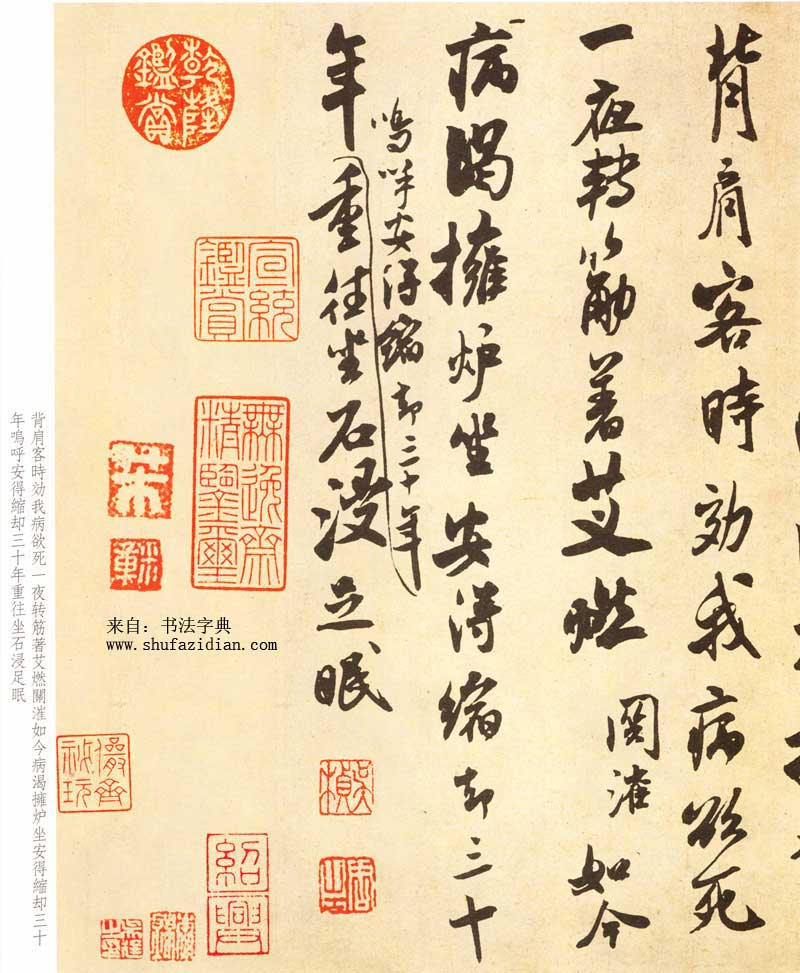 背肩客時効我病欲死
一夜轉筋著艾燃關漼如今
病渴擁炉坐安得縮却三十
嗚呼安得縮却三十年
年重往坐石浸足眠
乾隆鑑賞
宣統鑑賞
無逸齋精鑒璽
儼齋秘玩
紹興
来自：书法字典
www.shufazidian.com
背肩客時効我病欲死一夜转筋著艾燃關漼如今病渴擁炉坐安得縮却三十
年嗚呼安得縮却三十年重往坐石浸足眠